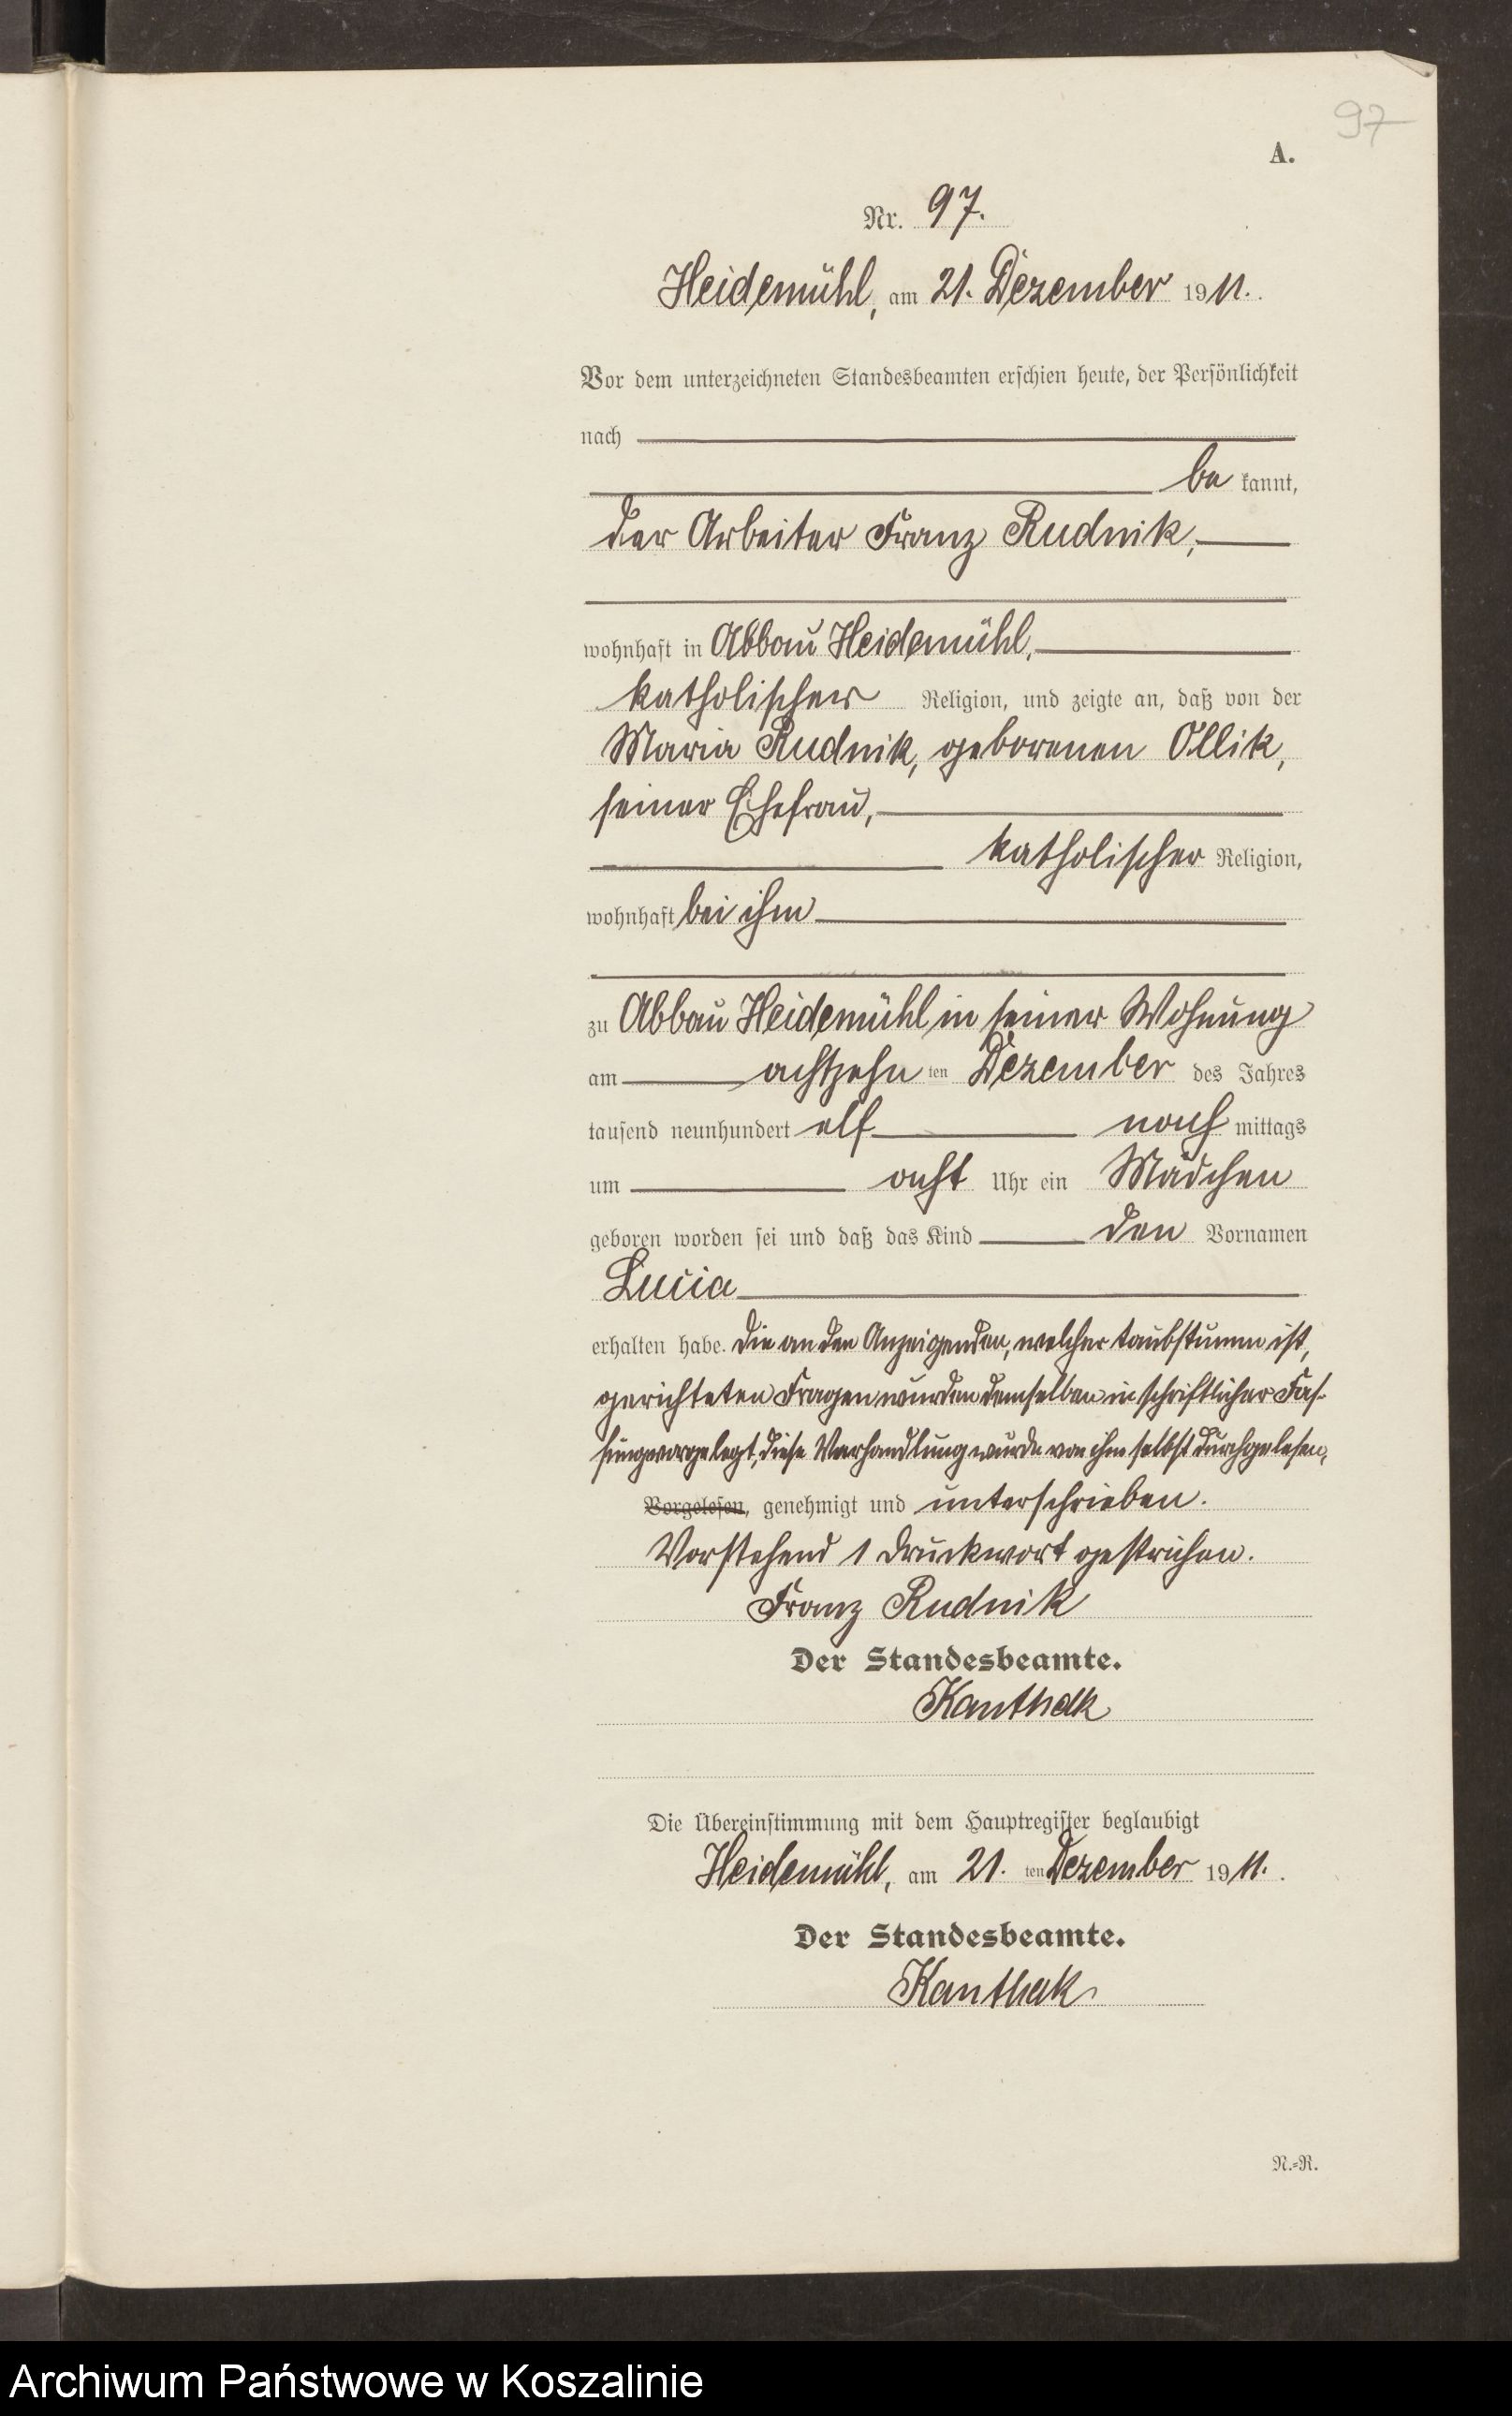 97
A.
Nr. 97.
Heidemühl, am 21. Dezember 1911.
Vor dem unterzeichneten Standesbeamten erschien heute, der Persönlichkeit
nach
be kannt,
der Arbeiter Franz Rudnik,
wohnhaft in Abbau Heidemühl,
katholischer Religion, und zeigte an, daß von der
Maria Rudnik, geborenen Ollik,
seiner Ehefrau,
katholischer Religion,
wohnhaft bei ihm
zu Abbau Heidemühl in seiner Wohnung
am achtzehn ten Dezember des Jahres
tausend neunhundert elf nach mittags
um acht Uhr ein Mädchen
geboren worden sei und daß das Kind den Vornamen
Lucia
erhalten habe. Die an den Anzeigenden, welcher taubstumm ist,
gerichteten Fragen wurden demselben in schriftlicher Fas-
sung vorgelegt, diese Verhandlung wurde von ihm selbst durchgelesen,
Vorgelesen, genehmigt und unterschrieben.
Vorstehend 1 Druckwort gestrichen.
Franz Rudnik
Der Standesbeamte.
Kanthak
Die Übereinstimmung mit dem Hauptregister beglaubigt
Heidemühl, am 21. ten Dezember 1911.
Der Standesbeamte.
Kanthak
N.=R.
Archiwum Państwowe w Koszalinie